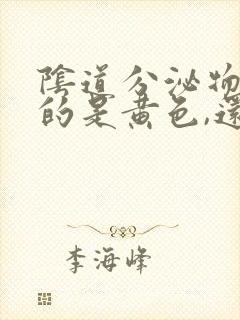 陰道分泌物
的是黄色,還
李海峰